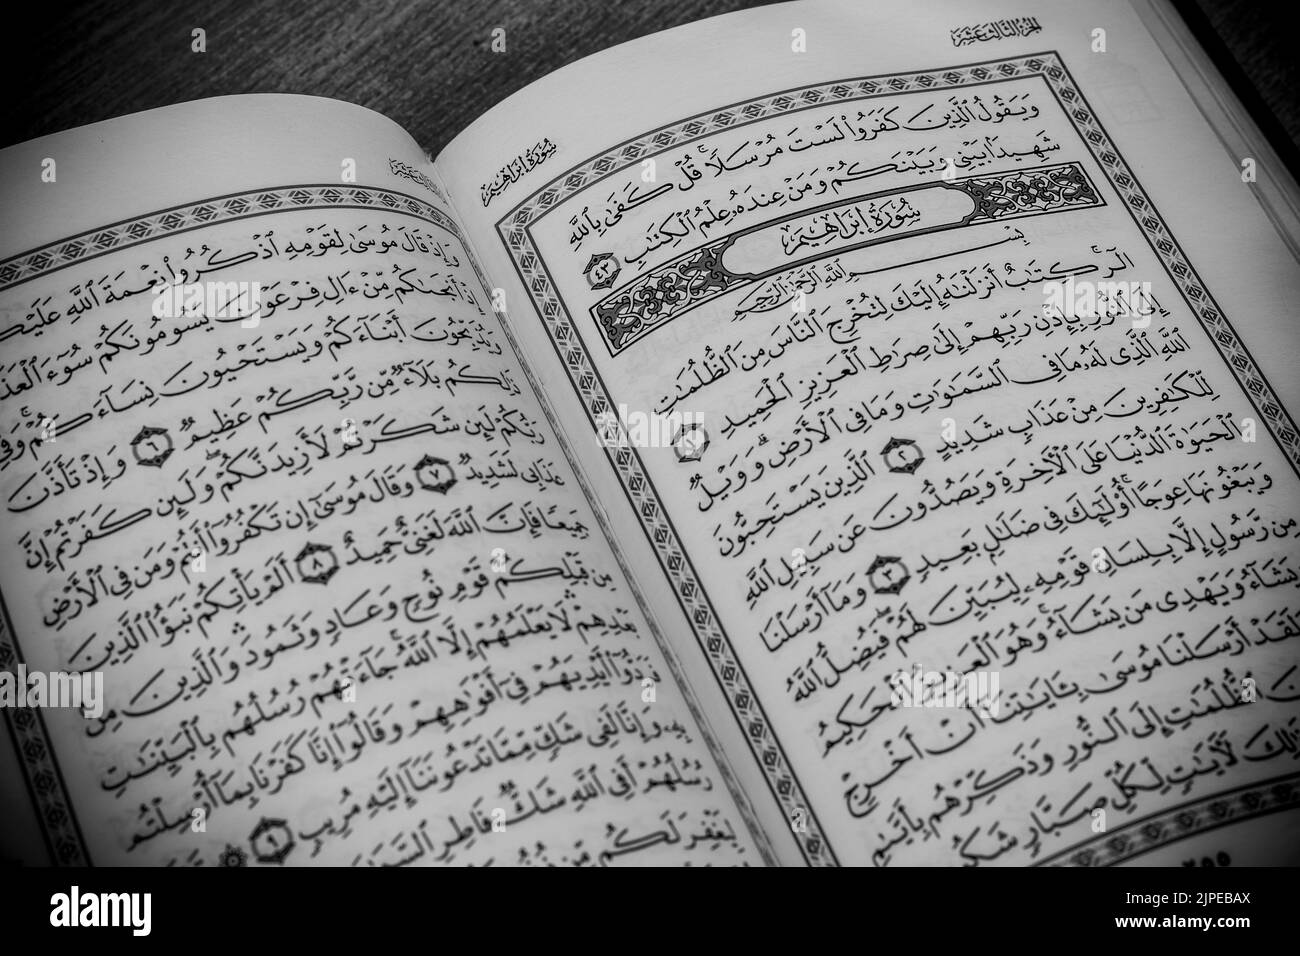 الجزء الثالث عشر
سُورَةُ إِبْرَاهِيمَ
وَيَقُولُ ٱلَّذِينَ كَفَرُوا۟ لَسْتَ مُرْسَلًا ۚ قُلْ كَفَىٰ بِٱللَّهِ
شَهِيدًۢا بَيْنِى وَبَيْنَكُمْ وَمَنْ عِندَهُۥ عِلْمُ ٱلْكِتَٰبِ ٤٣
سُورَةُ إِبْرَاهِيمَ
بِسْمِ ٱللَّهِ ٱلرَّحْمَٰنِ ٱلرَّحِيمِ
الٓر ۚ كِتَٰبٌ أَنزَلْنَٰهُ إِلَيْكَ لِتُخْرِجَ ٱلنَّاسَ مِنَ ٱلظُّلُمَٰتِ
إِلَى ٱلنُّورِ بِإِذْنِ رَبِّهِمْ إِلَىٰ صِرَٰطِ ٱلْعَزِيزِ ٱلْحَمِيدِ ١
ٱللَّهِ ٱلَّذِى لَهُۥ مَا فِى ٱلسَّمَٰوَٰتِ وَمَا فِى ٱلْأَرْضِ ۗ وَوَيْلٌ
لِّلْكَٰفِرِينَ مِنْ عَذَابٍ شَدِيدٍ ٢ ٱلَّذِينَ يَسْتَحِبُّونَ
ٱلْحَيَوٰةَ ٱلدُّنْيَا عَلَى ٱلْءَاخِرَةِ وَيَصُدُّونَ عَن سَبِيلِ ٱللَّهِ
وَيَبْغُونَهَا عِوَجًا ۚ أُو۟لَٰٓئِكَ فِى ضَلَٰلٍۭ بَعِيدٍ ٣ وَمَآ أَرْسَلْنَا
مِن رَّسُولٍ إِلَّا بِلِسَانِ قَوْمِهِۦ لِيُبَيِّنَ لَهُمْ ۖ فَيُضِلُّ ٱللَّهُ
يَشَآءُ وَيَهْدِى مَن يَشَآءُ ۚ وَهُوَ ٱلْعَزِيزُ ٱلْحَكِيمُ
لَقَدْ أَرْسَلْنَا مُوسَىٰ بِـَٔايَٰتِنَآ أَنْ أَخْرِجْ
ٱلظُّلُمَٰتِ إِلَى ٱلنُّورِ وَذَكِّرْهُم بِأَيَّىٰمِ
ذَٰلِكَ لَءَايَٰتٍ لِّكُلِّ صَبَّارٍ شَكُو
٢٥٥
وَإِذْ قَالَ مُوسَىٰ لِقَوْمِهِ ٱذْكُرُوا۟ نِعْمَةَ ٱللَّهِ عَلَيْكُ
إِذْ أَنجَىٰكُم مِّنْ ءَالِ فِرْعَوْنَ يَسُومُونَكُمْ سُوٓءَ ٱلْعَذَ
وَيُذَبِّحُونَ أَبْنَآءَكُمْ وَيَسْتَحْيُونَ نِسَآءَكُمْ ۚ وَفِى
ذَٰلِكُم بَلَآءٌ مِّن رَّبِّكُمْ عَظِيمٌ ٦ وَإِذْ تَأَذَّنَ
رَبُّكُمْ لَئِن شَكَرْتُمْ لَأَزِيدَنَّكُمْ ۖ وَلَئِن كَفَرْتُمْ إِنَّ
عَذَابِى لَشَدِيدٌ ٧ وَقَالَ مُوسَىٰٓ إِن تَكْفُرُوٓا۟ أَنتُمْ وَمَن فِى ٱلْأَرْضِ
جَمِيعًا فَإِنَّ ٱللَّهَ لَغَنِىٌّ حَمِيدٌ ٨ أَلَمْ يَأْتِكُمْ نَبَؤُا۟ ٱلَّذِينَ
مِن قَبْلِكُمْ قَوْمِ نُوحٍ وَعَادٍ وَثَمُودَ ۛ وَٱلَّذِينَ مِنۢ
بَعْدِهِمْ ۛ لَا يَعْلَمُهُمْ إِلَّا ٱللَّهُ ۚ جَآءَتْهُمْ رُسُلُهُم بِٱلْبَيِّنَٰتِ
فَرَدُّوٓا۟ أَيْدِيَهُمْ فِىٓ أَفْوَٰهِهِمْ وَقَالُوٓا۟ إِنَّا كَفَرْنَا بِمَآ أُرْسِلْتُم
بِهِۦ وَإِنَّا لَفِى شَكٍّ مِّمَّا تَدْعُونَنَآ إِلَيْهِ مُرِيبٍ ٩
رُسُلُهُمْ أَفِى ٱللَّهِ شَكٌّ فَاطِرِ ٱلسَّمَٰ
لِيَغْفِرَ لَكُم
alamy
Image ID: 2JPEBAX
www.alamy.com